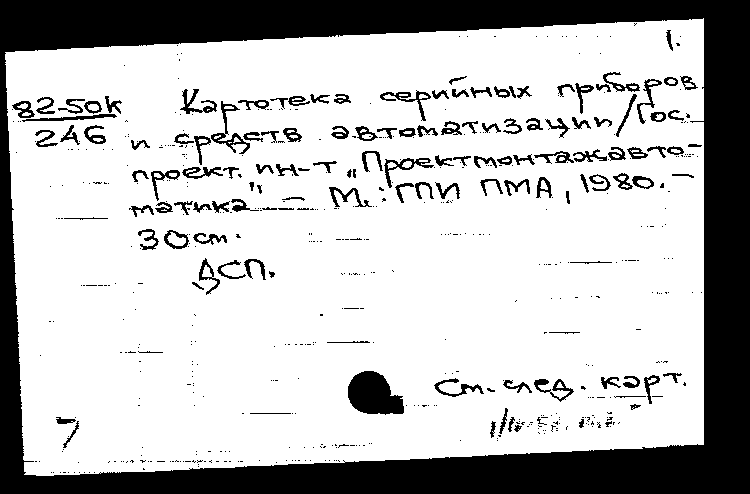 1.
82-50К
246
Картотека серийных приборов
и средств автоматизации/Гос.
проект. ин-т „Проектмонтажавто-
матика". – М.: ГПИ ПМА, 1980. –
30 см.
ДСП.
См. след. карт.
7